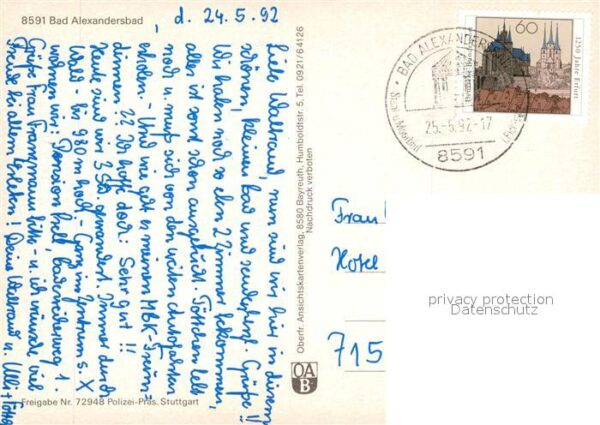 8591 Bad Alexandersbad
d. 24.5.92
Liebe Waltraud, nun sind wir hier in diesem
schönen, kleinen Bad und senden Grüße!!
Wir haben noch so eben 2 Zimmer bekommen,
alles ist sonst schon ausgebucht.
noch u. muß sich von den vielen
erholen. - Und wie geht's meinen MBK-Freun-
dinnen ?? Ich hoffe doch: Sehr gut!!
Heute sind wir 3 Std. gewandert. Immer durch
Wald - bis 980 m hoch - Ganz im Zentrum s. X
wohnen wir: Pension
Grüße Frau bitte - u. ich wünsche viel
Freude bei allem Erleben! Deine Waltraud u. Ulli +
Freigabe Nr. 72948 Polizei-Präs. Stuttgart
Oberfr. Ansichtskartenverlag, 8580 Bayreuth, Humboldtstr. 5, Tel. 0921/64126
Nachdruck verboten
OA
B
BAD ALEXANDERS
25.-5.92-17
8591
60
Deutsche Bundespost
1250 Jahre Erfurt
Frau
Hotel
715
privacy protection
Datenschutz